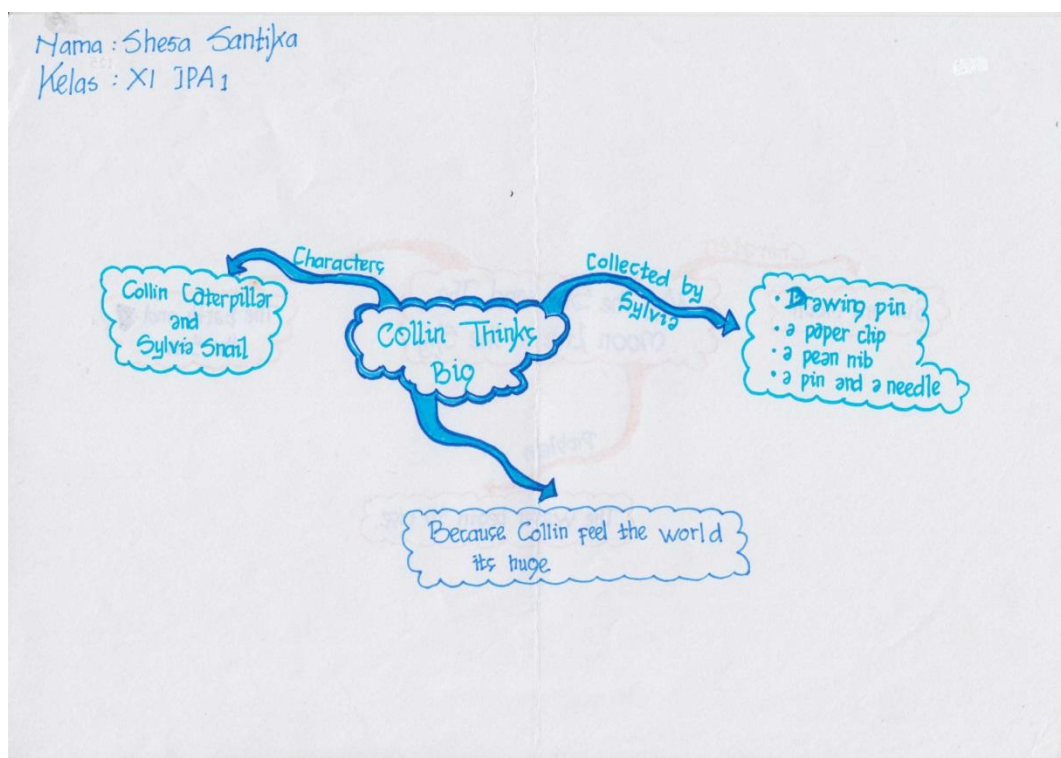 Nama : Shesa Santika
Kelas : XI IPA 1
Characters
Collin Caterpillar
and
Sylvia Snail
Collin Thinks
Big
Collected by
Sylvia
• Drawing pin
• a paper chip
• a pean nib
• a pin and a needle
Because Collin feel the world
its huge